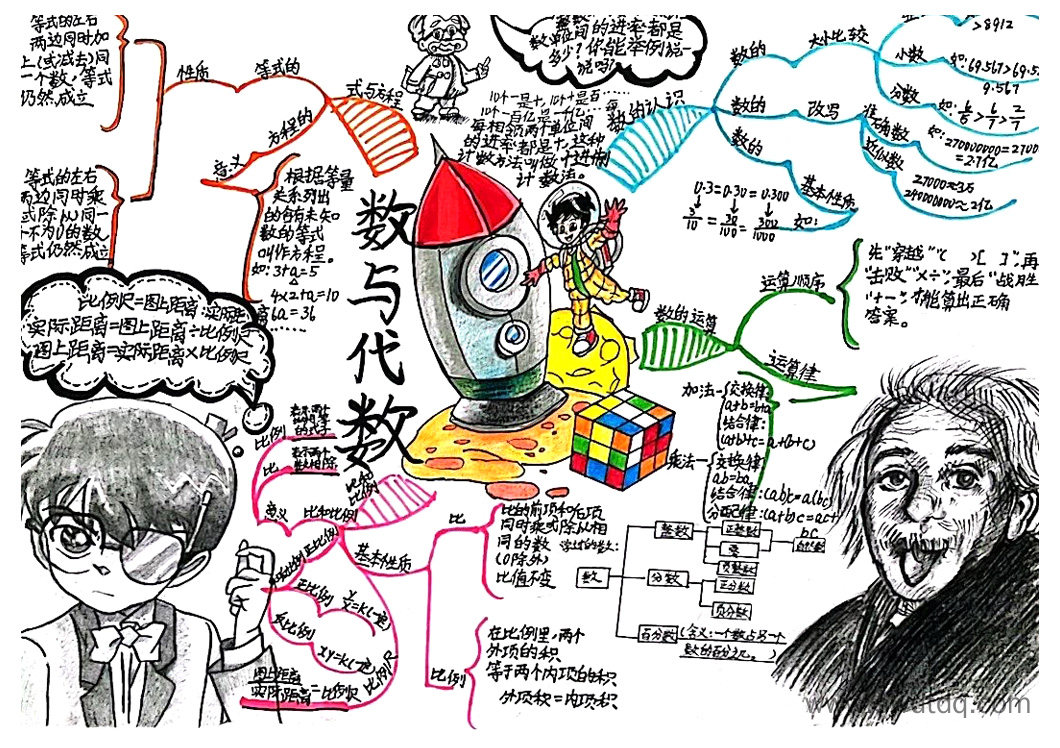 等式的左右
两边同时加
上(或减去)同
一个数,等式
仍然成立
性质
等式的
式与方程
方程的
意义
等式的左右
两边同时乘
或除以同一
个不为0的数,
等式仍然成立
根据等量
关系列出
的含有未知
数的等式
叫作方程。
如:3+a=5
4×2+a=10
6a=36
数与代数
单位间的进率都是
多少?你能举例说一
说吗?
10个一是十,10个十是百……
10个一百亿是一千亿…每
每相邻两个单位间
的进率都是十,这种
计数方法叫做十进制
计数法。
数的认识
数的
大小比较
>8912
小数
如:69.567>69.5
9.567
分数
如:6/5>6/7>2/7
数的
改写
准确数
如:270000000=27000
=2.7亿
近似数
27000≈3万
240000000≈2亿
数的
基本性质
0.3=0.30=0.300
3/10=30/100=300/1000
如:
数的运算
运算顺序
先"穿越"( )[ ],再
击败"×÷",最后"战胜
"+-",才能算出正确
答案。
运算律
加法-
交换律:
a+b=b+a
结合律:
(a+b)+c=a+(b+c)
乘法-
交换律:
ab=ba
结合律:(ab)c=a(bc)
分配律:(a+b)c=ac+
比例尺=图上距离:实际距离
实际距离=图上距离÷比例尺
图上距离=实际距离×比例尺
比和比例
比例
表示两个
比相等
的式子
比
表示两个
数相除
意义
比和比例
基本性质
正比例
y/x=k(一定)
反比例
xy=k(一定)
图上距离
实际距离
=比例尺
比例尺
比
比的前项和后项
同时乘或除以相
同的数
(0除外)
比值不变
比例
在比例里,两个
外项的积
等于两个内项的积
外项积=内项积
学过的数:
数
整数
正整数
零
负整数
自然数
分数
正分数
负分数
百分数
(含义:一个数占另一个
数的百分之几。)